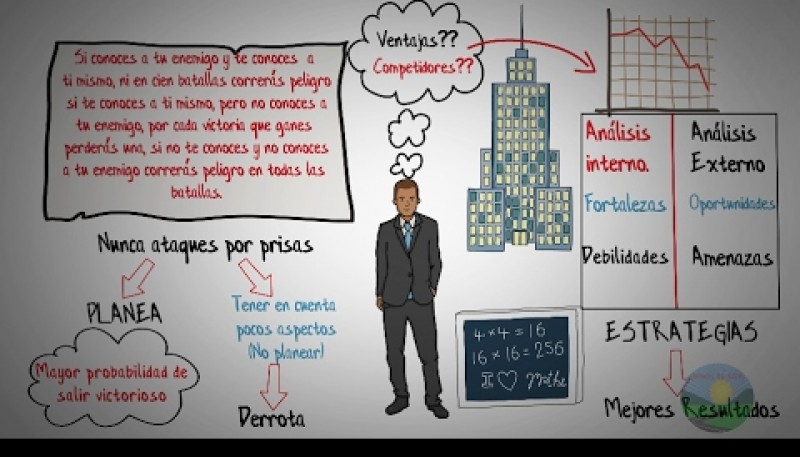 Si conoces a tu enemigo y te conoces a
ti mismo, ni en cien batallas correrás peligro
si te conoces a ti mismo, pero no conoces a
tu enemigo, por cada victoria que ganes
perderás una, si no te conoces y no conoces
a tu enemigo correrás peligro en todas las
batallas.
Nunca ataques por prisas
PLANEA
Mayor probabilidad de
salir victorioso
Tener en cuenta
pocos aspectos
(No planear)
Derrota
Ventajas??
Competidores??
4 x 4 = 16
16 x 16 = 256
I ♡
Análisis
interno.
Fortalezas
Debilidades
Análisis
Externo
Oportunidades
Amenazas
ESTRATEGIAS
Mejores Resultados